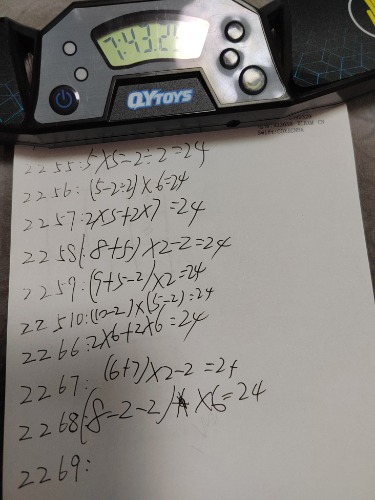 7:43.25
QYTOYS
2255:5×5-2÷2=24
2256:(5-2÷2)×6=24
2257:2×5+2×7=24
2258(8+5)×2-2=24
2259:(9+5-2)×2=24
22510:(10-2)×(5-2)=24
2266:2×6+2×6=24
2267:(6+7)×2-2=24
2268(8-2-2)×6=24
2269: